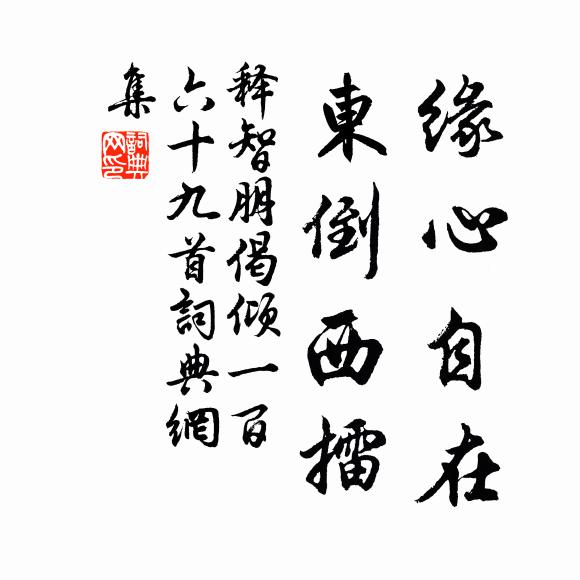 缘心自在
東倒西擂
释智朋偈倾一百
六十九首詞典網
集
詞典
网印